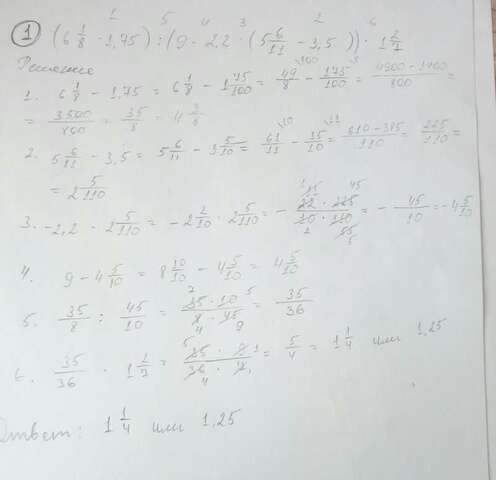 1 5 4 3 2 6
① (6 1/8 - 1,75) : (9 - 2,2 · (5 6/11 - 3,5)) · 1 2/7
Решение
1. 6 1/8 - 1,75 = 6 1/8 - 1 75/100 = 49/8 - 175/100 = 4900 - 1400/800 =
= 3500/800 = 35/8 = 4 3/8
2. 5 6/11 - 3,5 = 5 6/11 - 3 5/10 = 61/11 - 35/10 = 610 - 385/110 = 225/110 =
= 2 5/110
3. -2,2 · 2 5/110 = -2 2/10 · 2 5/110 = - 22 · 225/10 · 110 = - 45/10 = -4 5/10
4. 9 - 4 5/10 = 8 10/10 - 4 5/10 = 4 5/10
5. 35/8 : 45/10 = 35 · 10/8 · 45 = 35/36
6. 35/36 · 1 2/7 = 35 · 9/36 · 7 = 5/4 = 1 1/4 или 1,25
Ответ: 1 1/4 или 1,25